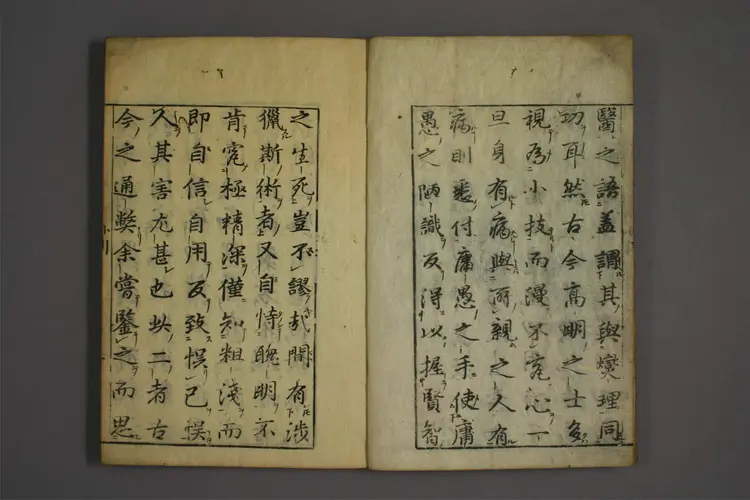 醫之語蓋謂其與燮理同
功耳然古今高明之士多
視為小技而漫不究心一
旦身有病與所親之人有
病則悉付庸愚之手使庸
愚之陋識反得以握賢智
之生死豈不謬哉間有涉
獵斯術者又自恃聰明不
肯究極精深僅知粗淺而
即自信自用反致悞已悞
人其害尤甚也此二者古
今之通獘余嘗鑒之而思